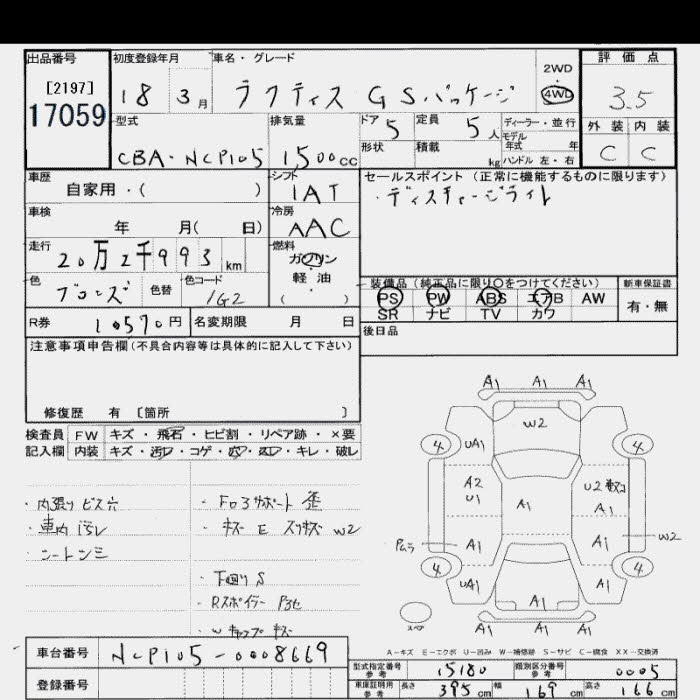 出品番号 初度登録年月 車名・グレード 2WD 評価点
[2197] 18 3月 ラクティス GSパッケージ 4WD 3.5
17059
型式 排気量 ドア 5 定員 5人 ディーラー・並行 外装 内装
CBA・NCP105 1500cc 形状 積載 kg モデル年式 年 C C
ハンドル 左・右
車歴 シフト セールスポイント(正常に機能するものに限ります)
自家用・( ) IAT ・ディスチャージライト
車検 冷房
年 月( 日) AAC
走行 燃料
20万2千993km ガソリン
軽油
( )
色 色替 色コード 装備品(純正品に限り○をつけてください) 新車保証書
ブロンズ 1G2 PS PW ABS エアB AW 有・無
SR ナビ TV カワ
R券 10570円 名変期限 月 日 後日品
注意事項申告欄(不具合内容等は具体的に記入して下さい)
修復歴 有 〔箇所 〕
検査員 FW キズ・飛石・ヒビ割・リペア跡・×要
記入欄 内装 キズ・汚レ・コゲ・穴・スレ・キレ・破レ
A1 A1 A1
W2
4 UA1 4
A2 U1 A1 A1
A1 A1 W2
4 UA1 A1 A1 4
A1 A1 A1
・内張りビス穴 ・Fロアサポート歪
・車内汚レ ・キズ E スリキズ W2
・シートシミ
・下回りS
・Rスポイラー
・Wキャップキズ
A-キズ E-エクボ U-凹み W-補修跡 S-サビ C-腐食 XX-交換済
車台番号 NCP105-0008669
登録番号
型式指定番号参考 15180 類別区分番号参考 0005
車庫証明用参考 長さ 395cm 幅 169cm 高さ 166cm